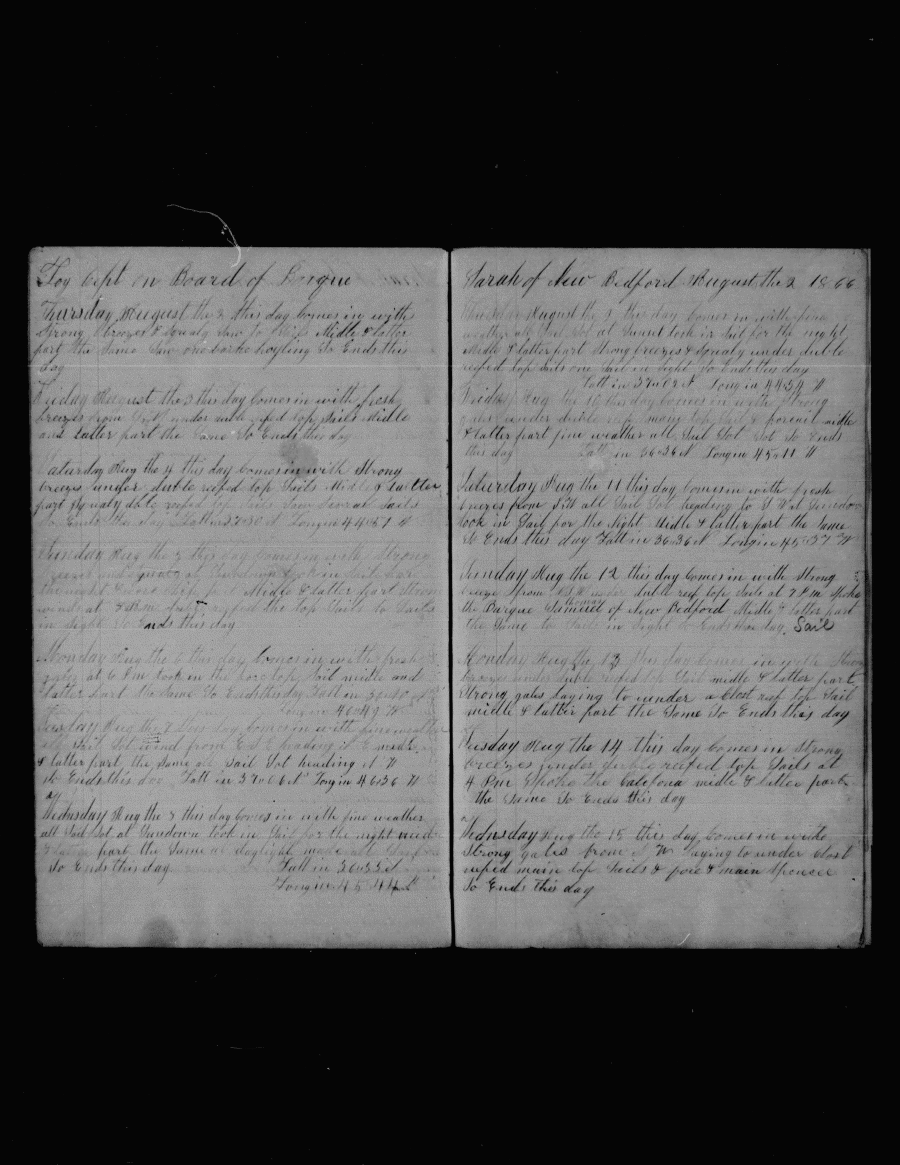 Log Cept on Board of Barque
Thursday August the 2 this day Comes in with
Strong Breezes & Squaly Saw to Ships Midle & latter
part the Same Saw one barke boyling So Ends this
day
Friday August the 3 this day Comes in with fresh
breezes from under duble reefed top Sails Midle
and latter part the Same So Ends this day
Saturday Aug the 4 this day Comes in with Strong
breezes under duble reefed top Sails Midl & latter
part Squaly duble reefed top Sails Saw Several Sails
So Ends this day Latt in Longin
Sunday Aug the 5 this day Comes in with Strong
breezes and Squaly at Sundown took in Sail for
the night Midle & latter part Strong
winds at reefed the top Sails to Sails
in Sight So Ends this day
Monday Aug the 6 this day Comes in with fresh
gales at 6 P M took in the fore top Sail midle and
latter part the Same So Ends this day Latt in
Longin 46=49 W
Tuesday Aug the 7 this day Comes in with fine weather
all Sail Sot wind from heading midle
& latter part the Same all Sail Sot heading W
So Ends this day Latt in 37=06 S Longin 46=36 W
Wedusday Aug the 8 this day Comes in with fine weather
all Sail Sot at Sundown took in Sail for the night mid
& latter part the Same at daylight made all
So Ends this day Latt in 36=33 S
Longin 45=44 W
Sarah of New Bedford August the 2 1866
Thursday August the 9 this day Comes in with fine
weather all Sail Sot at Sunset took in Sail for the night
Midle & latter part Strong breezes & Squaly under duble
reefed top Sails one Sail in Sight So Ends this day
Latt in 37=02 S Longin 44=54 W
Friday Aug the 10 this day Comes in with Strong
gales under duble reef main top Sail & foresail midle
& latter part fine weather all Sail Sot So Ends
this day Latt in 36=36 S Longin 45=11 W
Saturday Aug the 11 this day Comes in with fresh
breezes from all Sail Sot heading to at Sundown
took in Sail for the Night Midle & latter part the Same
So Ends this day Latt in 36=36 S Longin 45=57 W
Sunday Aug the 12 this day Comes in with Strong
breeze from under dubl reef top Sails at 7 P.M Spoke
the Barque of New Bedford Midle & latter part
the Same to Sails in Sight So Ends this day. Sail
Monday Aug the 13 this day Comes in with Strong
breezes under duble reefed top Sail midle & latter part
Strong gales Laying to under a Close reef top Sail
midle & latter part the Same So Ends this day
Tuesday Aug the 14 this day Comes in Strong
breezes under duble reefed top Sails at
4 P.m Spoke the Calefona midle & latter part
the Same So Ends this day
Wednsday Aug the 15 this day Comes in with
Strong gales from W Laying to under Close
reefed main top Sails & fore & main Spencer
So Ends this day